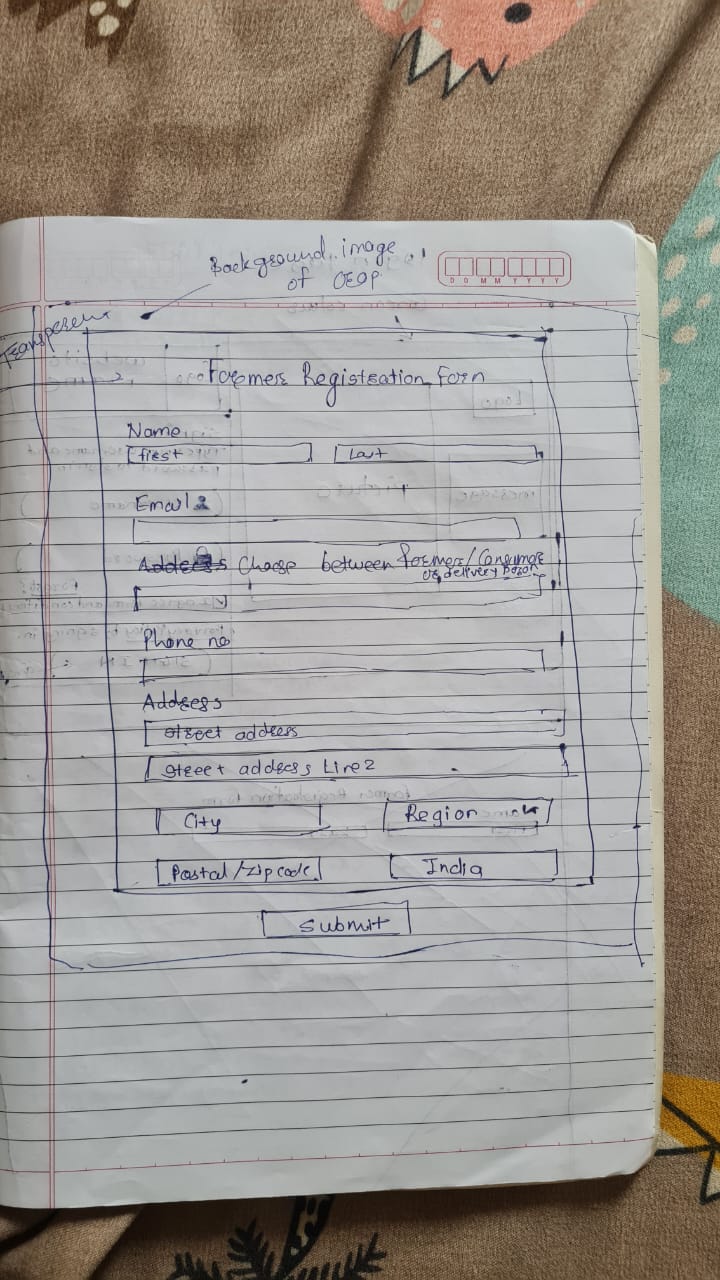 Background image
of CROP
DDMMYYYY
Transperent
Farmers Registration Form
Name
first
Last
Email
Address Choose between farmers/Consumer
or delivery
Phone no
Address
street address
street address Line 2
City
Region
Postal/zip code
India
Submit